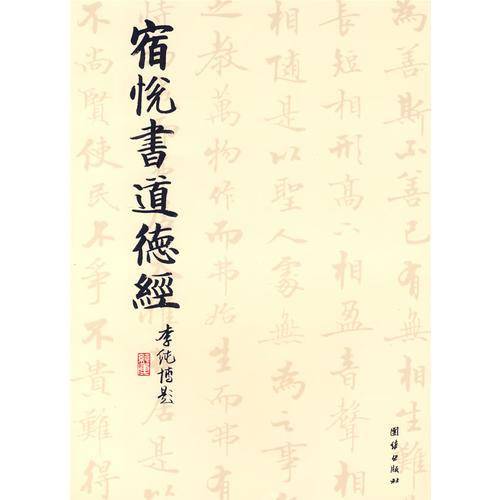 宿悦書道德經
李純博題
為善斯不善已有無相生難
長短相形高下相盈音聲
相隨是以聖人處無為之事
之教萬物作而弗始生而弗有
居是
不尚賢使民不爭不貴難得
團結出版社